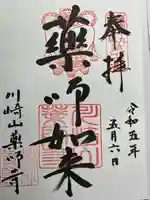 奉拝
令和五年
五月六日
藥師如来
川崎山藥師寺